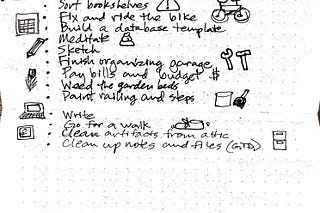 Sort bookshelves
Fix and ride the bike
Build a database template
Meditate
Sketch
Finish organizing garage
Pay bills and budget $
Weed the garden beds
Paint railing and steps
Write
Go for a walk
Clean artifacts from attic
Clean up notes and files (GTD)